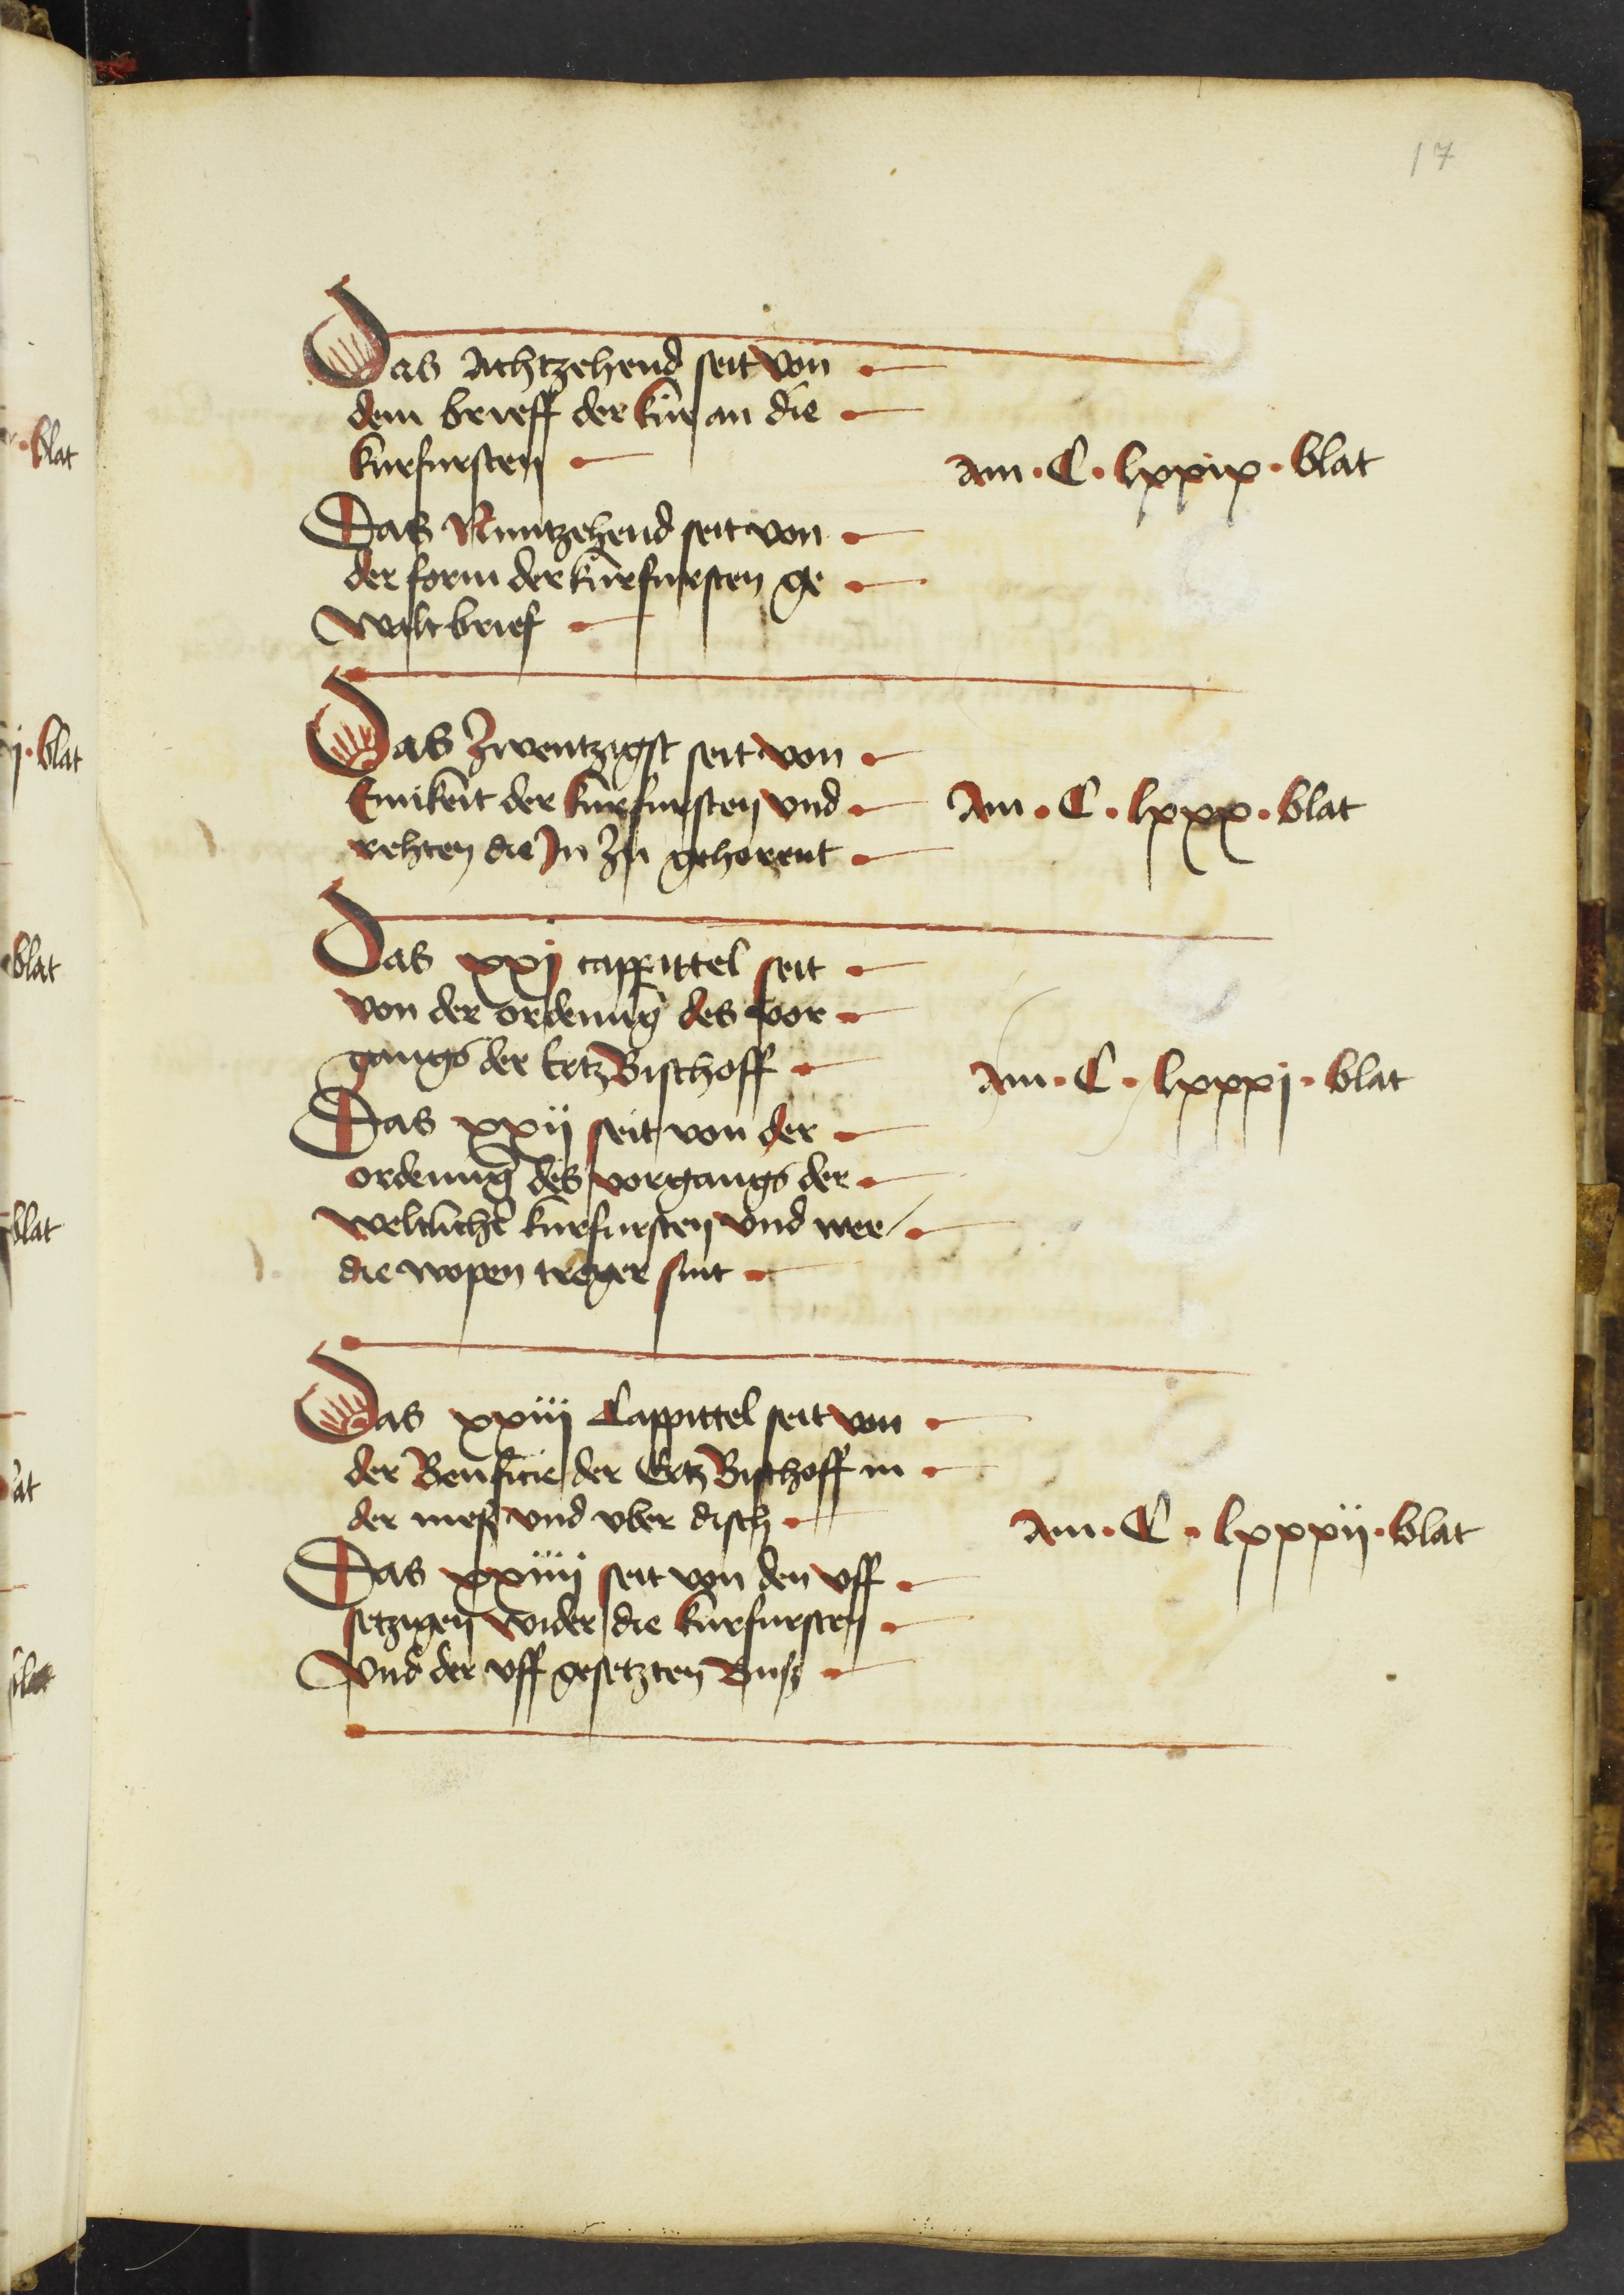 17
Das Achtzehend seit von
dem brieff der kür an die
kurfursten
Am · C · lxxix · blat
Das Nuntzehend seit von
der form der kurfursten ge
walt brief
Das Zwentzigst seit von
Einikeit der kurfursten vnd
Am · C · lxxx · blat
rehten die Jn Zu gehorent
Das xxj cappittel seit
von der ordenug des vor
gangs der Ertz Bischoff
Am · C · lxxxj · blat
Das xxij seit von der
ordenug des vorgangs der
weltlichē kurfursten vnd wer
die wopen treger sint
Das xxiij Cappittel seit von
der Benficie der Ertz Bischoff in
der mess vnd vber disch
Am · C · lxxxij · blat
Das xxiiij seit von den vff
setzigen wider die kurfursten
Vnd der vff gesetzten Buss
blat
j · blat
blat
blat
lat
blat